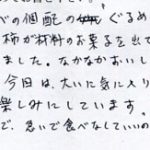 べの個配の ぐるめ
柿が材料のお菓子を出て
ました。なかなかおいし
今回は、大いに気に入り
楽しみにしています。
で、急いで食べなしていいの